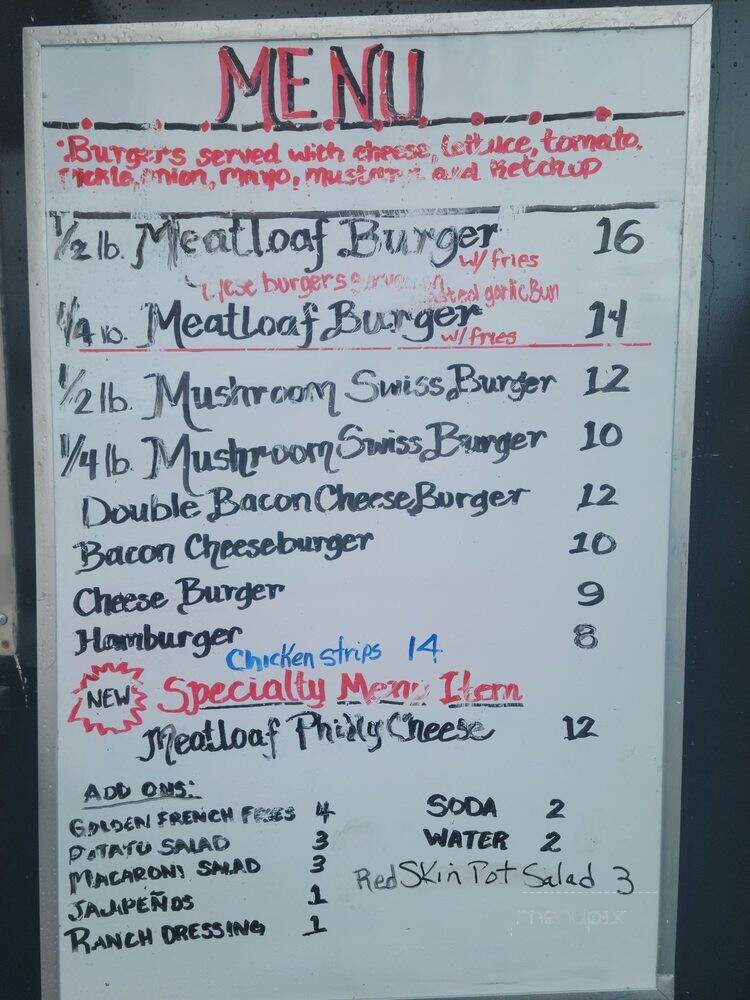 MENU
*Burgers served with cheese, lettuce, tomato,
Pickle, onion, mayo, mustard and Ketchup
1/2 lb. Meatloaf Burger 16
w/ fries
these burgers garlic Bun
1/4 lb. Meatloaf Burger 14
w/ fries
1/2 lb. Mushroom Swiss Burger 12
1/4 lb. Mushroom Swiss Burger 10
Double Bacon Cheese Burger 12
Bacon Cheeseburger 10
Cheese Burger 9
Hamburger 8
Chicken strips 14
NEW Specialty Menu Item
Meatloaf Philly Cheese 12
ADD ONS:
GOLDEN FRENCH FRIES 4
POTATO SALAD 3
MACARONI SALAD 3
JALAPEÑOS 1
RANCH DRESSING 1
SODA 2
WATER 2
Red Skin Pot Salad 3
menupix